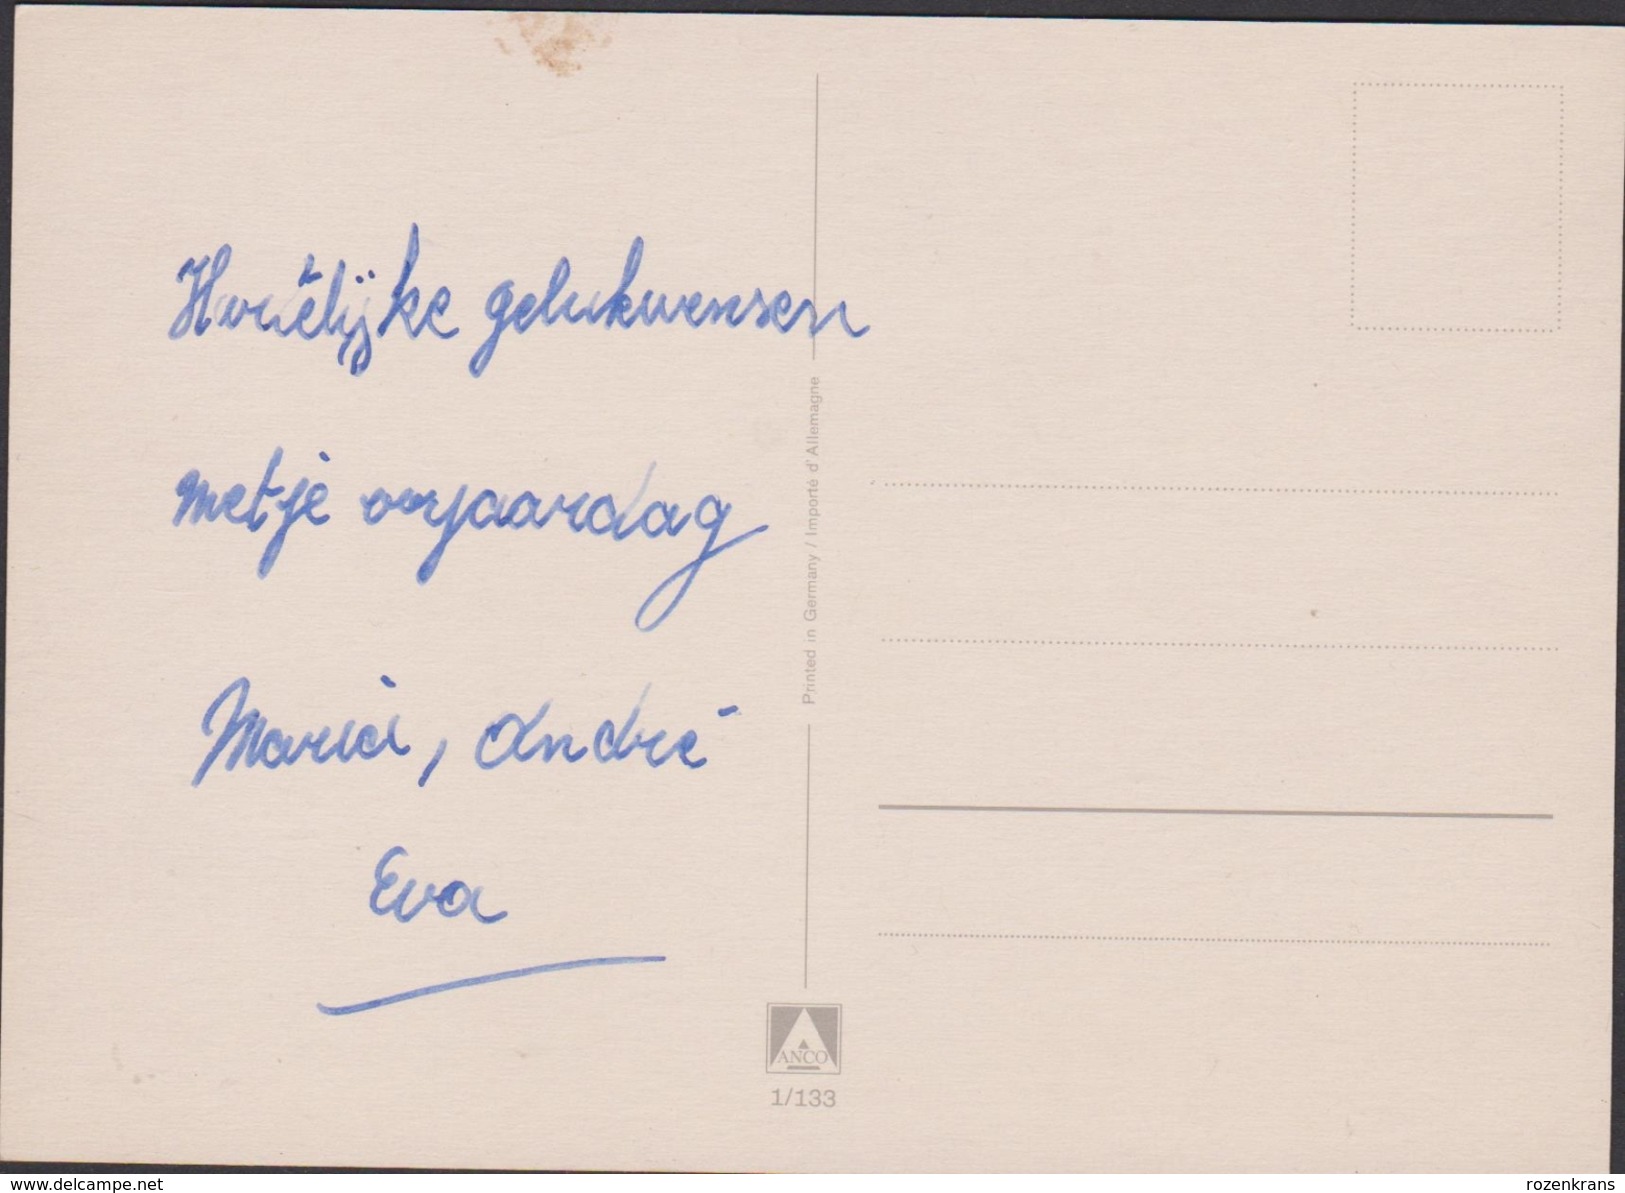 Hartelijke gelukwensen
met je verjaardag
Maria, André
Eva
Printed in Germany / Importé d'Allemagne
ANCO
1/133
www.delcampe.net
rozenkrans